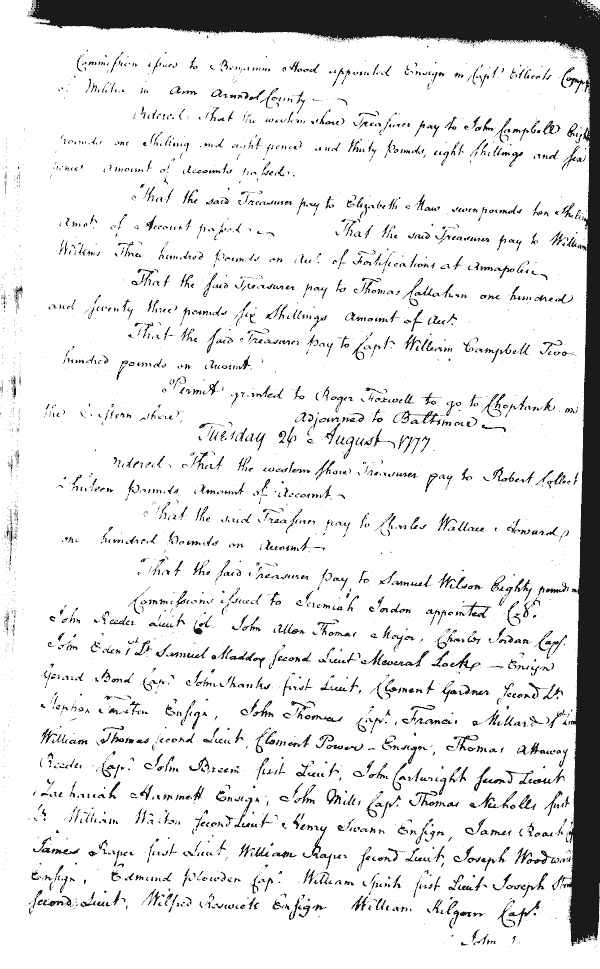 Commission issues to Benjamin Hood appointed Ensign in Capt. Ellicots Compy
of Militia in Ann Arundel County
Ordered That the western shore Treasurer pay to John Campbell Eight
Pounds one Shilling and eight pence and thirty Pounds, eight Shillings and six
pence amount of Accounts passed.
That the said Treasurer pay to Elizabeth Maw seven pounds ten Shillin
Amot. of Account passed. That the said Treasurer pay to William
Wilkins Three hundred Pounds on Acct. of Fortifications at Annapolis
That the said Treasurer pay to Thomas Callahan one hundred
and seventy three pounds six Shillings Amount of Acct.
That the said Treasurer pay to Capt. William Campbell Two
hundred pounds on Account.
Permit granted to Roger Foxwell to go to Choptank on
the Eastern shore. adjourned to Baltimore
Tuesday 26 August 1777.
Ordered That the western shore Treasurer pay to Robert
Thirteen Pounds Amount of Account.
That the said Treasurer pay to Charles Wallace Howard
one hundred Pounds on Account
That the said Treasurer Pay to Samuel Wilson Eighty pounds
Commissions issued to Jeremiah Jordon appointed Col.
John Reeder Lieut Col. John Allen Thomas Major, Charles Jordan Capt.
John Eden 1st Lt Samuel Maddox second Lieut Meveral Lock Ensign
Gerard Bond Capt. John Shanks first Lieut, Clement Gardner second Lt.
Stephen Ensign, John Thomas Capt. Francis Millard
William Thomas second Lieut, Clement Power Ensign, Thomas Attaway
Reeder Capt. John Breem first Lieut, John Cartwright second Lieut
Zachariah Hammett Ensign, John Mills Capt. Thomas Nicholls first
Lt William Walton second Lieut Henry Swann Ensign, James Roach
James Raper first Lieut, William Raper second Lieut, Joseph Woodward
Ensign, Edmund Plowden Capt. William first Lieut Joseph
second Lieut, Wilfred Ensign William Kilgour Capt.
John